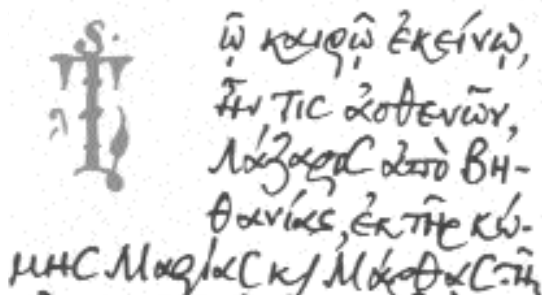 Τῷ καιρῷ ἐκείνῳ,
ἦν τις ἀσθενῶν,
Λάζαρος ἀπὸ Βη-
θανίας, ἐκ τῆς κώ-
μης Μαρίας κ Μάρθας τῆ